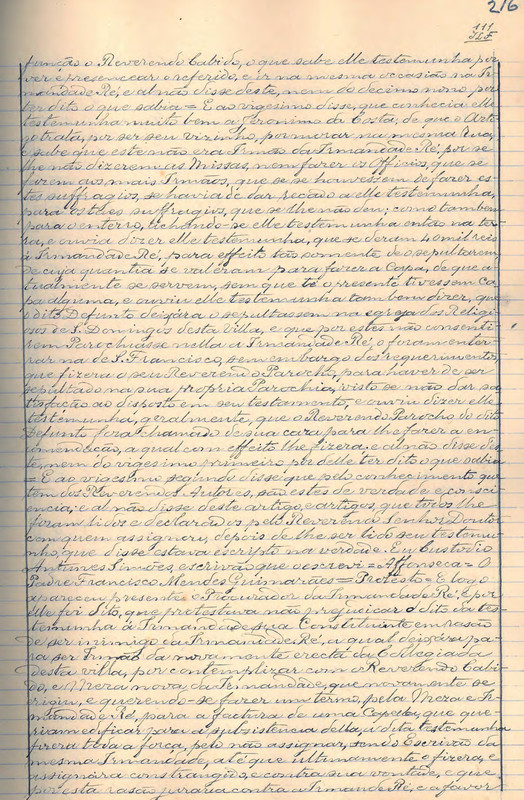 216
111
funcão o Reverendo Cabido, o que sabe elle testemunha, por
ver e presencear o referido, e ir na mesma occasião na Ir
mandade Ré, e al não disse deste, nem do decimo nono, por
ter dito o que sabia = E ao vigesimo disse, que conhecia elle
testemunha muito bem a Jeronimo da Costa, de que o Arti
go trata, por ser seu vizinho, por morar na mesma Rua,
e sabe que este não era Irmão da Irmandade Ré, por se
lhe não dizerem as Missas, nem fazer os Officios, que se
fazem aos mais Irmãos, que se se houvessem de fazer es
tes suffragios, se havia de dar recado a elle testemunha,
para os ditos suffragios, que se lhe não deu; como tambem
para o enterro, achando-se elle testemunha então na ter
ra, e ouvia dizer elle testemunha, que se deram 40 mil reis
á Irmandade Ré, para effeito tão somente de o sepultarem,
de cuja quantia se valeram para fazer a Capa, de que a
ctualmente se servem, sem que té o presente tivessem ca
pa alguma, e ouviu elle testemunha tambem dizer, que
o dito Defunto deixára o sepultassem na egreja dos Religi
osos de S. Domingos desta Villa, e que por estes não consenti
rem Parochiasse nella a Irmandade Ré, o foram enter
rar na de S. Francisco, sem embargo dos requerimentos,
que fizera o seu Reverendo Parocho, para haver de ser
sepultado na sua propria Parochia, visto se não dar sa
tisfação ao disposto em seu testamento, e ouviu dizer elle
testemunha, geralmente, que o Reverendo Parocho do dito
Defunto fora chamado de sua caza para lhe fazer a en
comendação, a qual com effeito lhe fizera, e al não disse des
te, nem do vigesimo primeiro por delle ter dito o que sabia
= E ao vigesimo segundo disse que pelo conhecimento que
tem dos Reverendos Autores, são estes de verdade e consci
encia; e al não disse deste artigo, e artigos, que todos lhe
foram lidos e declarados pelo Reverendo Senhor Doutor
com quem assignou, depois de lhe ser lido seu testemu
nho, que disse estava escripto na verdade. Eu Custodio
Antunes Simões, escrivão que o escrevi = Affonseca = O
Padre Francisco Mendes Guimarães = Protesto = E logo
apareceu presente o Procurador da Irmandade Ré, e por
elle foi dito, que protestava não prejudicar o dito da tes
temunha á Irmandade sua Constituinte em rasão
de ser inimigo da Irmandade Ré, a qual deixára pa
ra ser Irmão da novamente erecta da Collegiada
desta villa, por contemplizar com o Reverendo Cabi
do, e Meza nova, da Irmandade, que novamente se
erigiu, e querendo-se fazer um termo, pela Meza e Ir
mandade Ré, para a factura de uma Capella, que que
riam edificar para a subsistencia della, a dita testemunha
fizera toda a força, pelo não assignar, sendo Escrivão da
mesma Irmandade, até que ultimamente o fizera, e
assignára constrangido, e contra sua vontade, e que
por esta rasão jurava contra a Irmandade Ré, e a favor